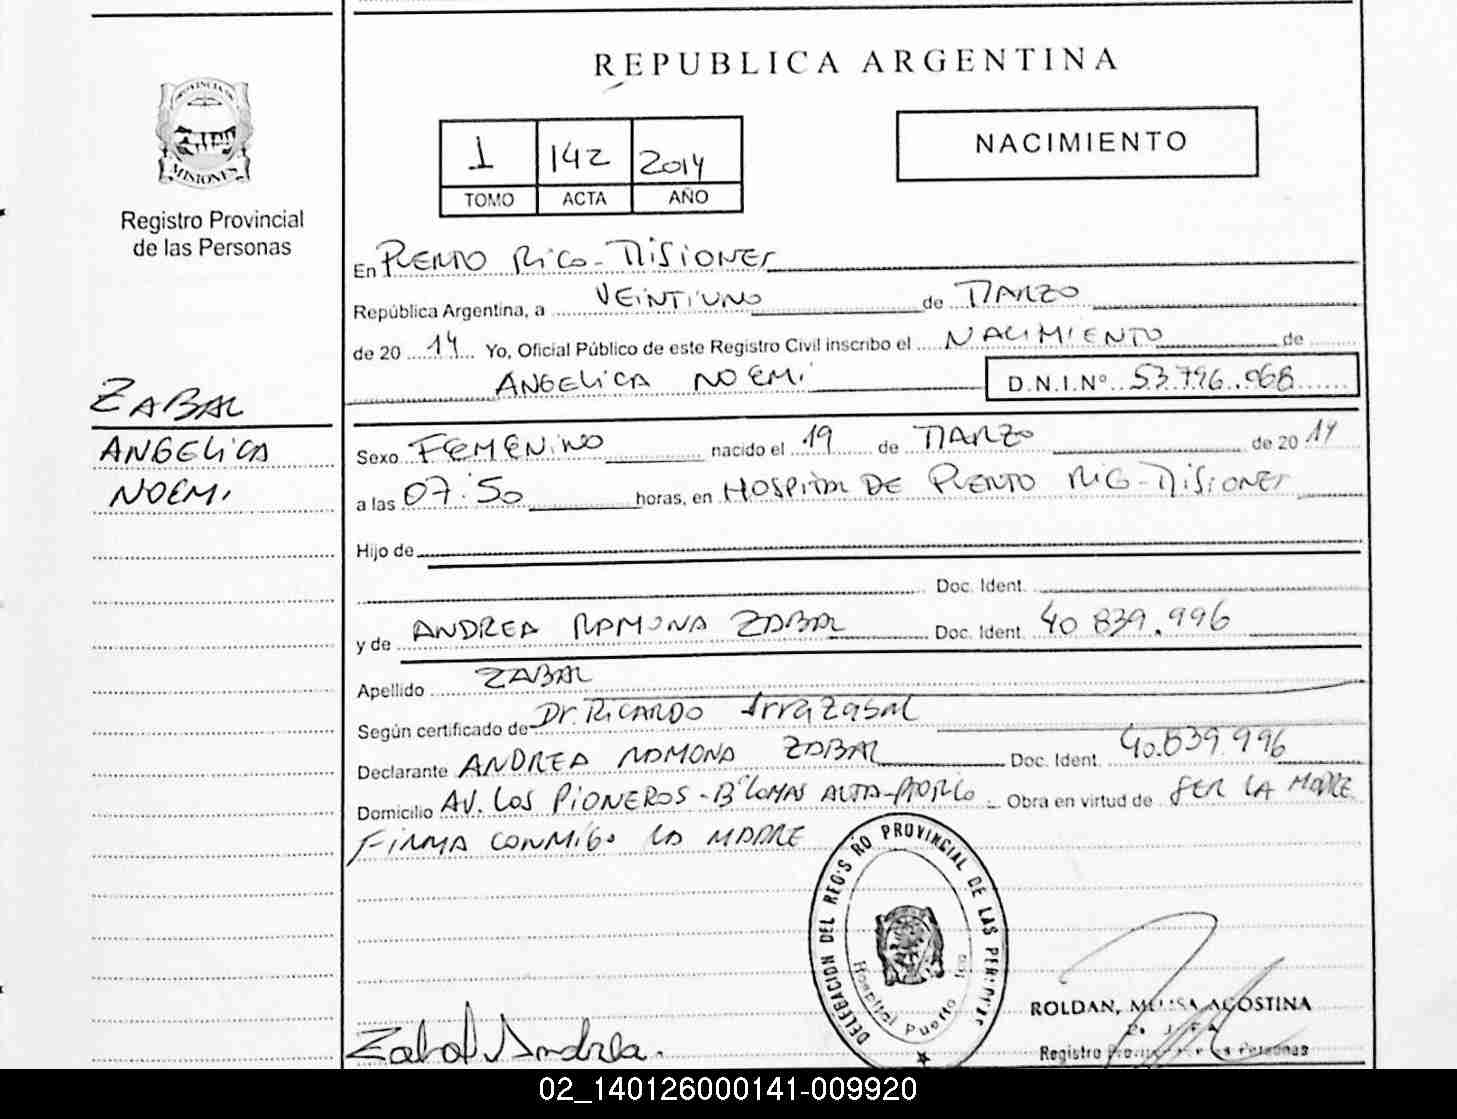 REPUBLICA ARGENTINA
PROVINCIA DE
MISIONES
Registro Provincial
de las Personas
1 142 2014
TOMO ACTA AÑO
NACIMIENTO
En PUERTO RICO - MISIONES
República Argentina, a VEINTIUNO de MARZO
de 20 14 Yo, Oficial Público de este Registro Civil inscribo el NACIMIENTO de
ANGELICA NOEMI D.N.I.Nº 53.796.068
ZABAL
ANGELICA
NOEMI
Sexo FEMENINO nacido el 19 de MARZO de 20 14
a las 07:50 horas, en HOSPITAL DE PUERTO RICO - MISIONES
Hijo de
Doc. Ident.
y de ANDREA RAMONA ZABAL Doc. Ident. 40.839.996
Apellido ZABAL
Según certificado de Dr. RICARDO Irrazabal
Declarante ANDREA RAMONA ZABAL Doc. Ident. 40.839.996
Domicilio AV. LOS PIONEROS - Bº LOMAS ALTA - PTO RICO Obra en virtud de SER LA MADRE
FIRMA CONMIGO LA MADRE
DELEGACION DEL REGISTRO PROVINCIAL DE LAS PERSONAS
Hospital Puerto Rico
Zabal Andrea.
ROLDAN, MELISA AGOSTINA
Registro Provincial de las Personas
02_140126000141-009920